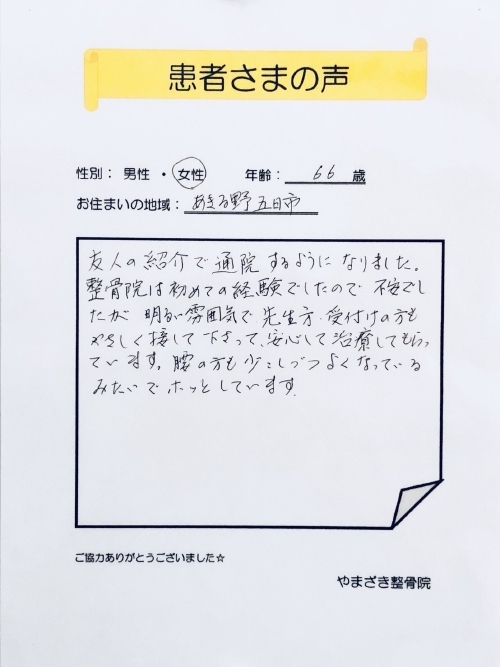 患者さまの声
性別： 男性 ・ 女性 年齢： 66 歳
お住まいの地域： あきる野五日市
友人の紹介で通院するようになりました。
整骨院は初めての経験でしたので 不安でし
たが 明るい雰囲気で先生方、受付けの方も
やさしく接して下さって、安心して治療してもらっ
ています。腰の方も少しづつよくなっている
みたいでホッとしています。
ご協力ありがとうございました☆
やまざき整骨院